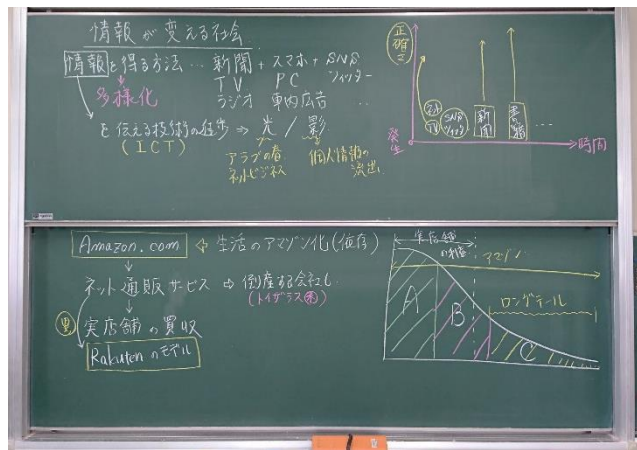 情報が変える社会
情報を得る方法… 新聞+スマホ+SNS
TV PC ツイッター
ラジオ 車内広告 ‥
多様化
を伝える技術の進歩 ⇒ 光 / 影
(ICT)
アラブの春
ネットビジネス
個人情報の
流出
正確さ
ネット
TV
SNS
ツイッター
新聞
書籍
…
発生
時間
Amazon.com ⇦ 生活のアマゾン化(依存)
ネット通販サービス ⇨ 倒産する会社も
(トイザラス㊍)
実店舗の買収
Rakutenのモデル
実店舗
の利益
アマゾン
ロングテール
A
B
C